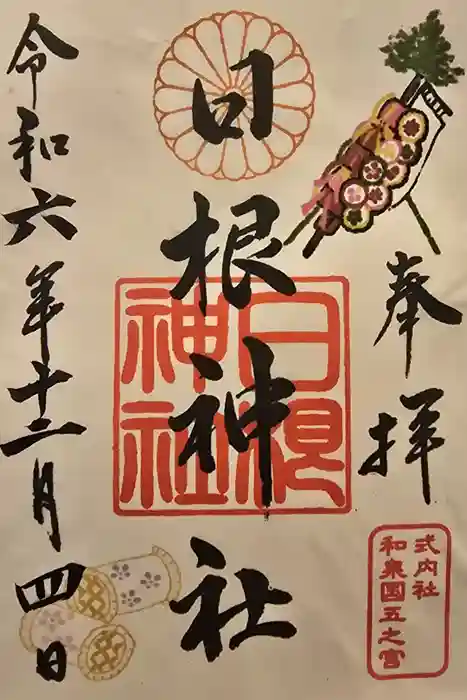 奉拝
式内社
和泉國五之宮
日根神社
日根
神社
令和六年十二月四日